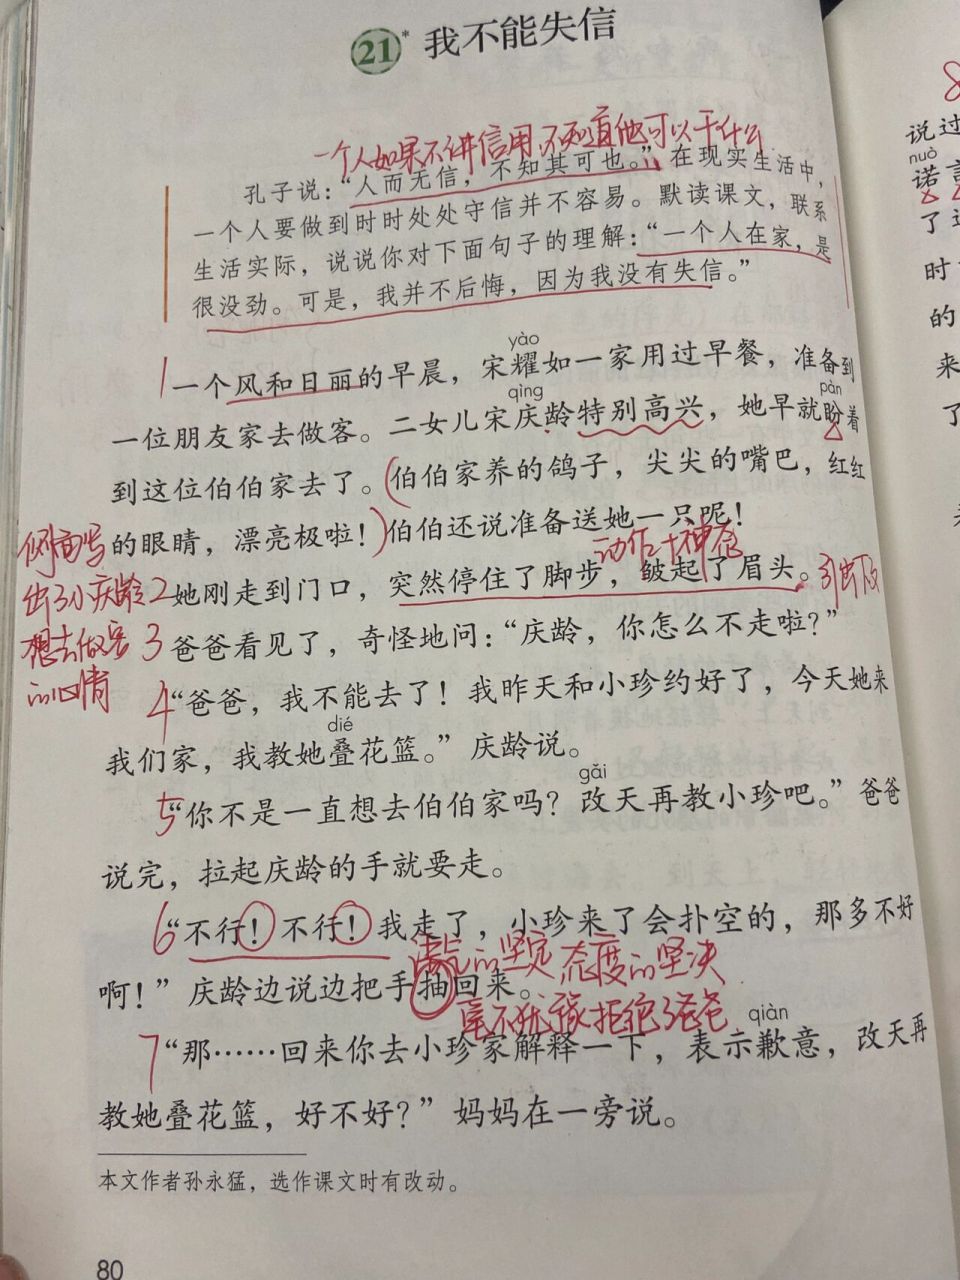 21* 我不能失信
一个人如果不讲信用,不知道他可以干什么
孔子说：“人而无信，不知其可也。”在现实生活中，
一个人要做到时时处处守信并不容易。默读课文，联系
生活实际，说说你对下面句子的理解：“一个人在家，是
很没劲。可是，我并不后悔，因为我没有失信。”
yào
1 一个风和日丽的早晨，宋耀如一家用过早餐，准备到
qìng pàn
一位朋友家去做客。二女儿宋庆龄特别高兴，她早就盼着
到这位伯伯家去了。(伯伯家养的鸽子，尖尖的嘴巴，红红
侧面写
的眼睛，漂亮极啦！)伯伯还说准备送她一只呢！
动作+神态
出了小庆龄
2 她刚走到门口，突然停住了脚步，皱起了眉头。
想去做客
3 爸爸看见了，奇怪地问：“庆龄，你怎么不走啦？”
的心情
4 “爸爸，我不能去了！我昨天和小珍约好了，今天她来
dié
我们家，我教她叠花篮。”庆龄说。
gǎi
5 “你不是一直想去伯伯家吗？改天再教小珍吧。”爸爸
说完，拉起庆龄的手就要走。
6 “不行！不行！我走了，小珍来了会扑空的，那多不好
语气的坚定 态度的坚决
啊！”庆龄边说边把手抽回来。
毫不犹豫拒绝了爸爸
qiàn
7 “那……回来你去小珍家解释一下，表示歉意，改天再
教她叠花篮，好不好？”妈妈在一旁说。
本文作者孙永猛，选作课文时有改动。
80
8
说过
nuò
诺言
了这
时
的
来
了